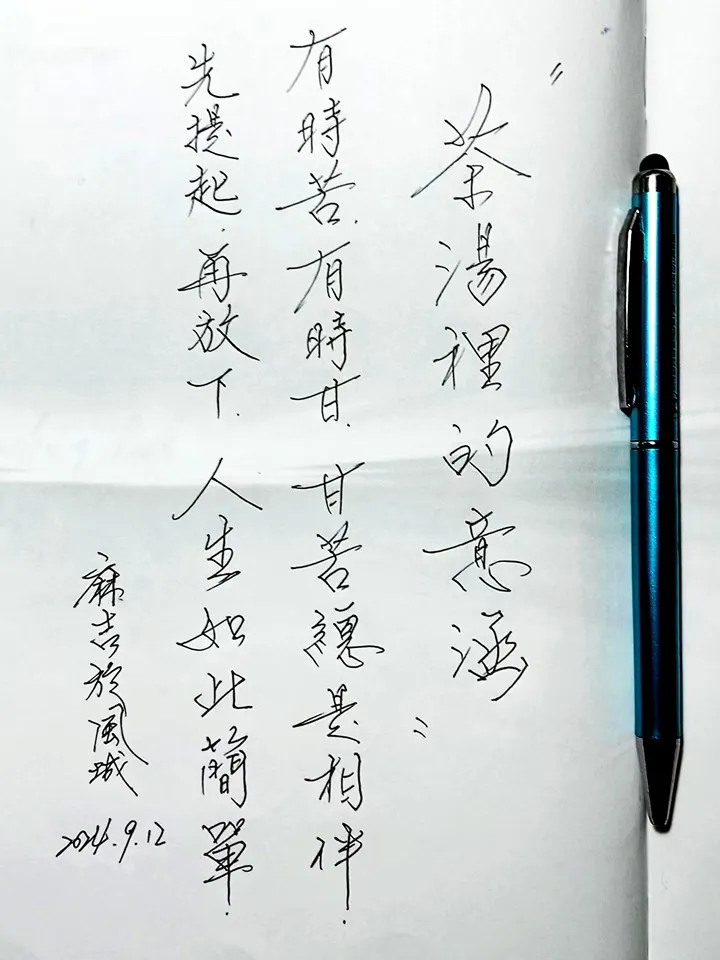 "茶湯裡的意涵"
有時苦.有時甘.甘苦總是相伴.
先提起.再放下.人生如此簡單.
麻吉於風城
2024.9.12